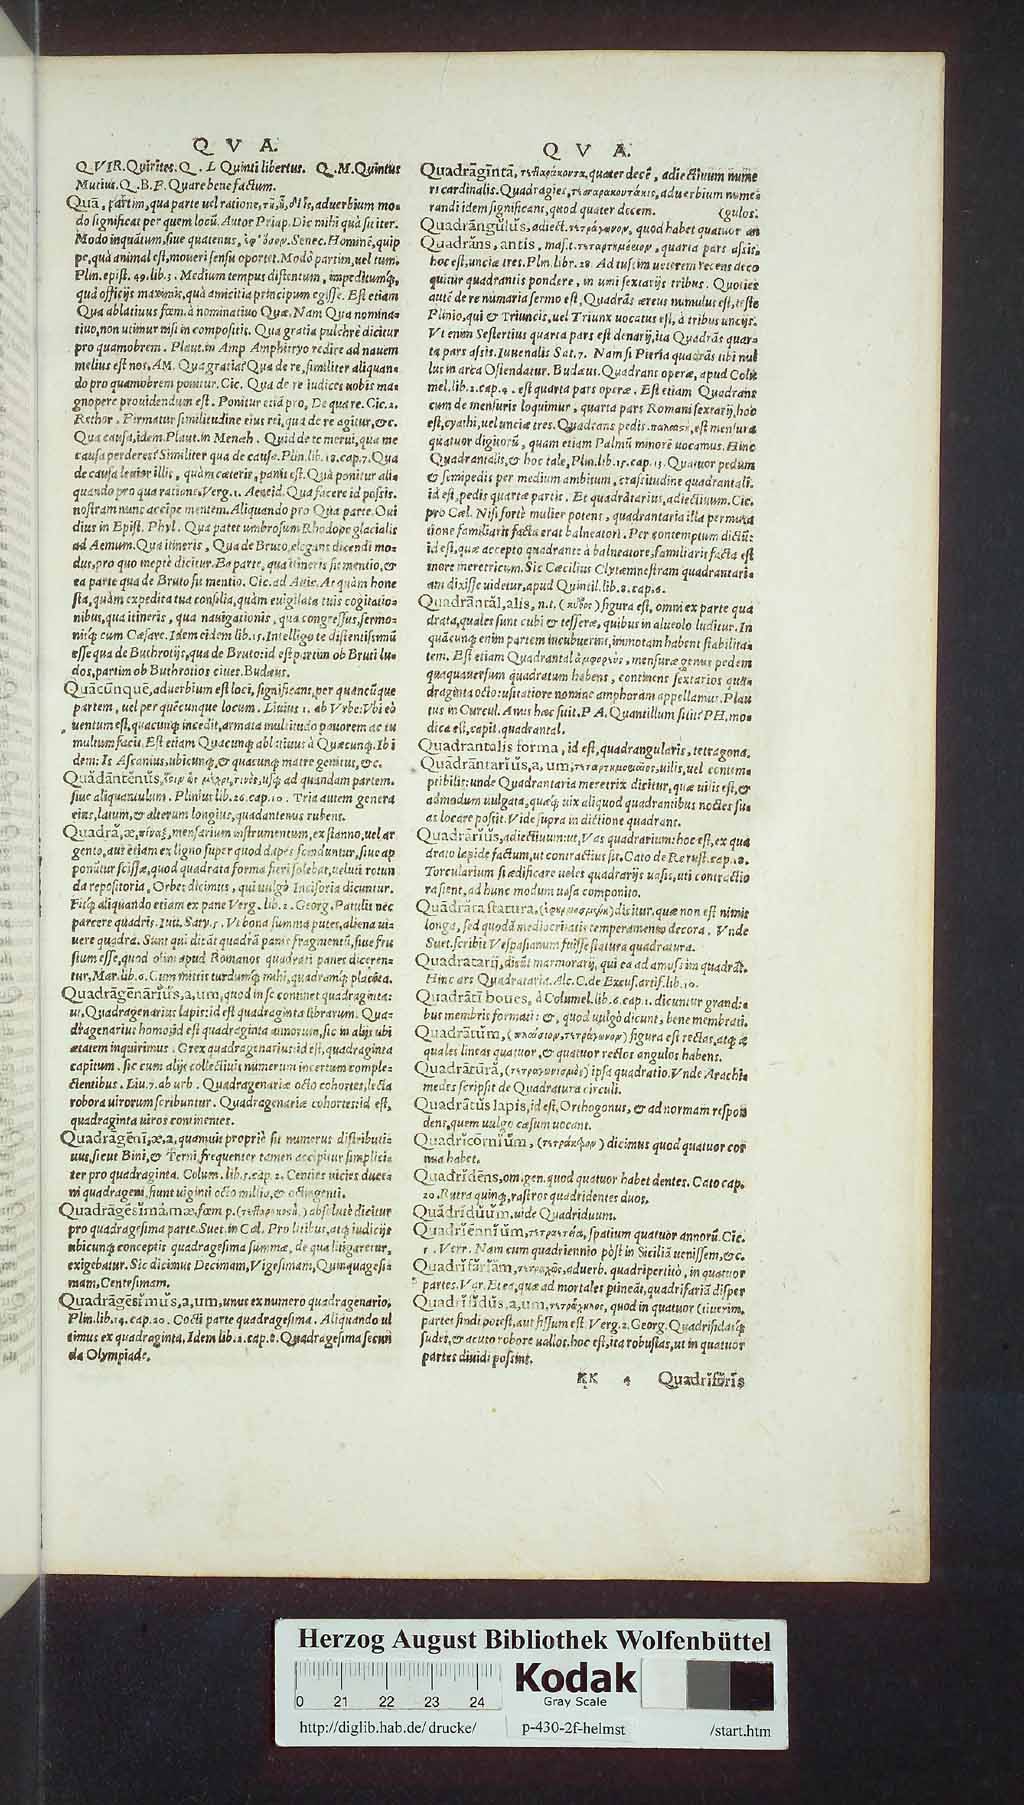 Q V A.
Q. VIR. Quirites. Q. L Quinti libertus. Q. M. Quintus
Mutius. Q. B. F. Quare bene factum.
Quā, partim, qua parte uel ratione, aduerbium mo-
do significat per quem locū. Autor Priap. Dic mihi quà sit iter.
Modo inquātum, siue quatenus, Senec. Hominē, quip
pe, quà animal est, moueri sensu oportet. Modò partim, uel tum.
Plin. epist. 49. lib. 3. Medium tempus distentum, impeditumq́;,
quà officijs maximis, quà amicitia principum egisse. Est etiam
Qua ablatiuus fœm. à nominatiuo Quæ. Nam Qua nomina-
tiuo, non utimur nisi in compositis. Qua gratia pulchrè dicitur
pro quamobrem. Plaut. in Amp Amphitryo redire ad nauem
melius est nos. AM. Qua gratia? Qua de re, similiter aliquan-
do pro quamobrem ponitur. Cic. Qua de re iudices uobis ma-
gnopere prouidendum est. Ponitur etiā pro, De qua re. Cic. 2.
Rethor. Firmatur similitudine eius rei, qua de re agitur, &c.
Qua causa, idem. Plaut. in Menæh. Quid de te merui, qua me
causa perderes? Similiter qua de causa. Plin. lib. 18. cap. 7. Qua
de causa leuior illis, quàm cæteris, panis est. Quà ponitur ali-
quando pro qua ratione, Verg. 1. Aeneid. Qua facere id possis.
nostram nunc accipe mentem. Aliquando pro Qua parte. Oui
dius in Epist. Phyl. Qua patet umbrosum Rhodope glacialis
ad Aemum. Qua itineris, Qua de Bruto, elegans dicendi mo-
dus, pro quo ineptè dicitur. Ea parte, qua itineris sit mentio, &
ea parte qua de Bruto sit mentio. Cic. ad Attic. At quàm hone
sta, quàm expedita tua consilia, quàm euigilata tuis cogitatio-
nibus, qua itineris, qua nauigationis, qua congressus, sermo-
nisq́; cum Cæsare. Idem eidem lib. 15. Intelligo te distentissimū
esse qua de Buthrotijs, qua de Bruto: id est partim ob Bruti lu-
dos, partim ob Buthrotios ciues. Budæus.
Quācūnquē, aduerbium est loci, significans, per quancūque
partem, uel per quēcunque locum. Liuius 1. ab Vrbe: Vbi eò
uentum est, quacunq́; incedit, armata multitudo pauorem ac tu
multum facit. Est etiam Quacunq́; ablatiuus à Quæcunq́;. Ibi
dem: Is Ascanius, ubicunq́;, & quacunq́; matre genitus, &c.
Quādāntĕnŭs, usq́; ad quandam partem.
siue aliquantulum. Plinius lib. 26. cap. 10. Tria autem genera
eius, latum, & alterum longius, quadantenus rubens.
Quādră, æ, πίναξ, mensarium instrumentum, ex stanno, uel ar
gento, aut etiam ex ligno super quod dapes scinduntur, siue ap
ponūtur scissæ, quod quadrata forma fieri solebat, ueluti rotun
da repositoria. Orbes dicimus, qui uulgò Incisoria dicuntur.
Fitq́; aliquando etiam ex pane Verg. lib. 2. Georg. Patulis nec
parcere quadris. Iuit. Saty. 5. Vt bona summa putes, aliena ui-
uere quadra. Sunt qui dicāt quadrā panis fragmentū, siue fru
stum esse, quod olim apud Romanos quadrati panes diceren-
tur, Mar. lib. 6. Cum mittis turdumq́; mihi, quadramq́; placētæ.
Quadrāgēnārĭŭs, a, um, quod in se continet quadraginta:
ut, Quadragenarius lapis: id est quadraginta librarum. Qua-
dragenarius homo: id est quadraginta annorum, sic in alijs ubi
ætatem inquirimus. Grex quadragenarius: id est, quadraginta
capitum. sic cum alijs collectiuis numerum incertum comple-
ctentibus. Liu. 7. ab urb. Quadragenariæ octo cohortes, lecta
robora uirorum scribuntur. Quadragenariæ cohortes: id est,
quadraginta uiros continentes.
Quadrāgēnī, æ, a, quamuis propriè sit numerus distributi-
uus, sicut Bini, & Terni frequenter tamen accipitur simplici-
ter pro quadraginta. Colum. lib. 5. cap. 2. Centies uicies duce-
ni quadrageni, fiunt uiginti octo millia, & octingenti.
Quadrāgēsĭmă, mæ. fœm. p. absolutè dicitur
pro quadragesima parte. Suet. in Cal. Pro litibus, atq́; iudicijs
ubicunq́; conceptis quadragesima summæ, de qua litigaretur,
exigebatur. Sic dicimus Decimam, Vigesimam, Quinquagesi-
mam, Centesimam.
Quadrāgēsĭmŭs, a, um, unus ex numero quadragenario,
Plin. lib. 14. cap. 20. Cocti parte quadragesima. Aliquando ul
timus ex quadraginta, Idem lib. 2. cap. 8. Quadragesima secun
da Olympiade.
Q V A.
Quadrāgīntā, quater decē, adiectiuum nume
ri cardinalis. Quadragies, τεσσαρακοντάκις, aduerbium nume-
randi idem significans, quod quater decem. (gulos.
Quadrāngŭlŭs, adiect. τετράγωνον, quod habet quatuor an
Quadrāns, antis, mas. t. quarta pars assis,
hoc est, unciæ tres. Plin. libr. 28. Ad tussim ueterem recens deco
quitur quadrantis pondere, in uini sextarijs tribus. Quoties
autē de re numaria sermo est, Quadrās æreus numulus est, teste
Plinio, qui & Triuncis, uel Triunx uocatus est, à tribus uncijs.
Vt enim Sestertius quarta pars est denarij, ita Quadrās quar-
ta pars assis. Iuuenalis Sat. 7. Nam si Pitria quadrās tibi nul
lus in arca Ostendatur. Budæus. Quadrans operæ, apud Colu
mel. lib. 2. cap. 4. est quarta pars operæ. Est etiam Quadrans
cum de mensuris loquimur, quarta pars Romani sextarij, hoc
est, cyathi, uel unciæ tres. Quadrans pedis. est mensura
quatuor digitorū, quam etiam Palmū minorē uocamus. Hinc
Quadrantalis, & hoc tale, Plin. lib. 15. cap. 13. Quatuor pedum
& semipedis per medium ambitum, crassitudine quadrantali.
id est, pedis quartæ partis. Et quadrātarius, adiectiuum. Cic.
pro Cæl. Nisi fortè mulier potens, quadrantaria illa permuta
tione familiaris facta erat balneatori. Per contemptum dictū:
id est, quæ accepto quadrante à balneatore, familiaris facta est
more meretricum. Sic Cæcilius Clytæmnestram quadrantari-
am dixisse uidetur, apud Quintil. lib. 8. cap. 6.
Quadrāntăl, alis, n. t. (κύβος) figura est, omni ex parte qua
drata, quales sunt cubi & tesseræ, quibus in alueolo luditur. In
quācunq; enim partem incubuerint, immotam habent stabilita-
tem. Est etiam Quadrantal ἀμφορεὺς, mensuræ genus pedem
quaquauersum quadratum habens, continens sextarios qua-
draginta octo: usitatiore nomine amphoram appellamus. Plau
tus in Curcul. Anus hæc sitit. P A. Quantillum sitit? PH. mo-
dica est, capit. quadrantal.
Quadrantalis forma, id est, quadrangularis, tetragona.
Quādrāntārĭŭs, a, um, uilis, uel contem-
ptibilis: unde Quadrantaria meretrix dicitur, quæ uilis est, &
admodum uulgata, quæq́; uix aliquod quadrantibus noctes su-
as locare possit. Vide supra in dictione quadrans.
Quadrārĭŭs, adiectiuum: ut, Vas quadrarium: hoc est, ex qua
drato lapide factum, ut contractius sit. Cato de Rerust. cap. 18.
Torcularium si ædificare uoles quadrarijs uasis, uti contractio
ra sient, ad hunc modum uasa componito.
Quādrāta statura, dicitur. quæ non est nimis
longa, sed quodā mediocritatis temperamento decora. Vnde
Suet. scribit Vespasianum fuisse statura quadratura.
Quadratarij, dicūt marmorarij, qui ea ad amussim quadrāt.
Hinc ars Quadrataria. Alc. C. de Excus. artif. lib. 10.
Quadrātī boues, à Columel. lib. 6. cap. 1. dicuntur grandi-
bus membris formati: &, quod uulgò dicunt, bene membrati.
Quadrātŭm, (πλαίσιον, τετράγωνον) figura est rectas, atq́; æ
quales lineas quatuor, & quatuor rectos angulos habens.
Quadrātūră, (τετραγωνισμὸς) ipsa quadratio. Vnde Arachi-
medes scripsit de Quadratura circuli.
Quadrātŭs lapis, id est, Orthogonus, & ad normam respon
dens, quem uulgo cæsum uocant.
Quadrīcōrnĭŭm, dicimus quod quatuor cor
nua habet.
Quadrīdēns, om. gen. quod quatuor habet dentes. Cato cap.
20. Rutra quinq́;, rastros quadridentes duos,
Quādrīdŭŭm. uide Quadriduum.
Quadrīēnnĭŭm, spatium quatuor annorū. Cic.
5. Verr. Nam cum quadriennio pòst in Siciliā uenissem, &c.
Quadrīfārĭām, τετραχῶς, aduerb. quadripertitò, in quatuor
partes. Var. Et ea, quæ ad mortales ptineāt, quadrifariā disper
Quadrīfĭdŭs, a, um, quod in quatuor (tiuerim.
partes findi potest, aut fissum est. Verg. 2. Georg. Quadrifidasq́;
sudes, & acuto robore uallos. hoc est, ita robustas, ut in quatuor
partes diuidi possint.
KK 4 Quadrifŏrīs
Herzog August Bibliothek Wolfenbüttel
0 21 22 23 24
Kodak
Gray Scale
http://diglib.hab.de/drucke/ p-430-2f-helmst /start.htm